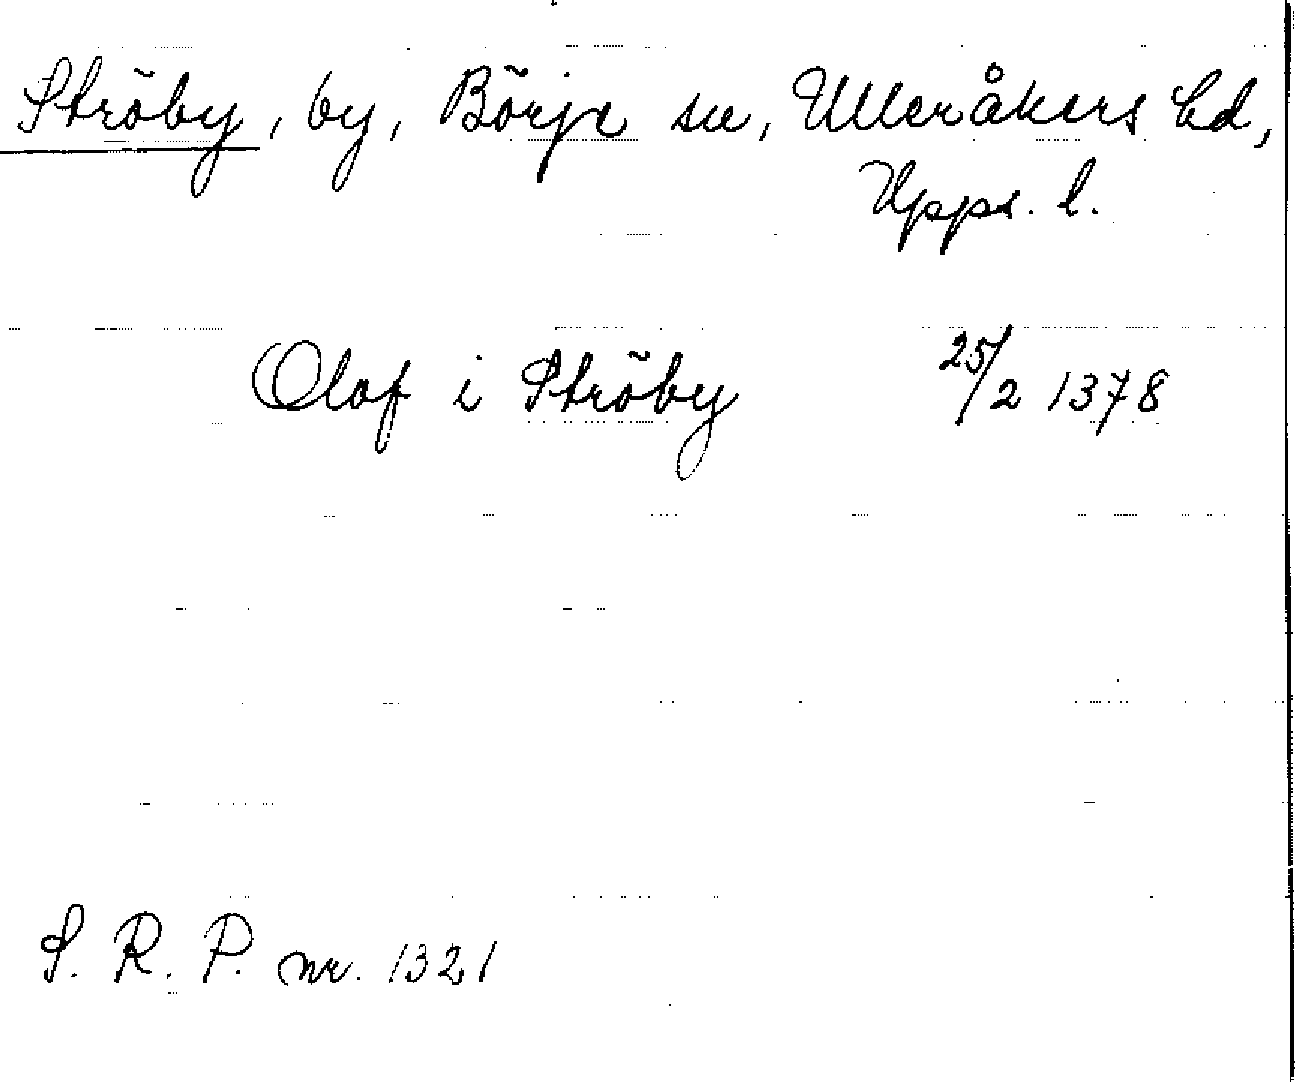 Ströby, by, Börje sn, Ulleråkers hd,
Upps. l.
Olof i Ströby 25/2 1378
S. R. P. nr. 1321